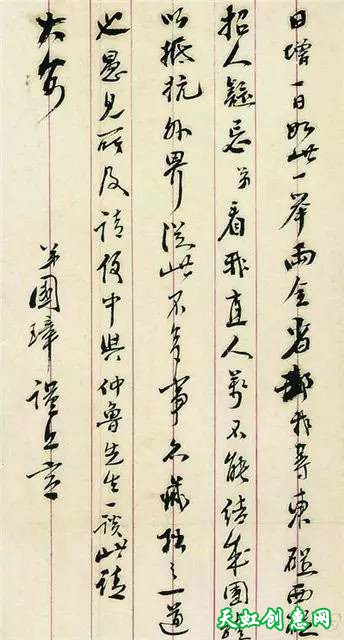 日增一日如此一舉兩全省等東碰西
招人疑忌弟看非直人萬不能結成團體
以抵抗外界從此不多事亦藏拙之一道
也愚見所及請便中與仲魯先生一談此請
大安
弟國璋謹上言
天虹创意网